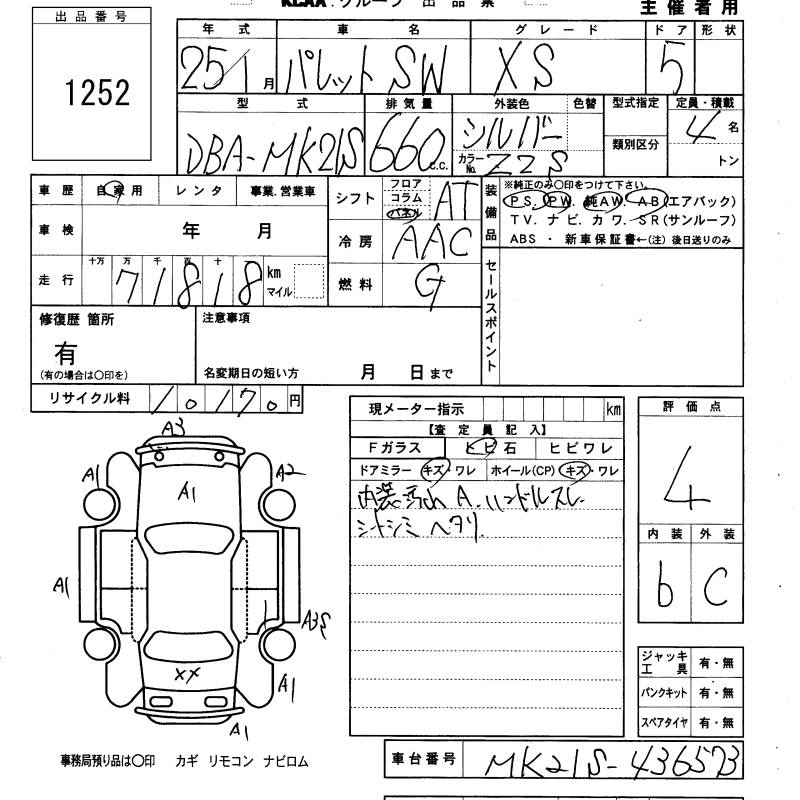 KCAA.グループ 出品票
主催者用
出品番号
1252
年式 車名 グレード ドア 形状
25/1月 パレット SW XS 5
型式 排気量 外装色 色替 型式指定 定員・積載
DBA-MK21S 660c.c. シルバー 類別区分 4名
カラーNo. Z2S トン
車歴 自家用 レンタ 事業.営業車
シフト フロア コラム パネル AT
装備品 ※純正のみ〇印をつけて下さい。
PS. PW. 純AW. AB(エアバック)
TV. ナビ. カワ. SR(サンルーフ)
ABS ・ 新車保証書←(注) 後日送りのみ
車検 年 月
冷房 AAC
走行 十万 万 千 百 十 km マイル
71818
燃料 G
セールスポイント
修復歴 箇所
有
(有の場合は〇印を)
注意事項
名変期日の短い方 月 日まで
リサイクル料 10170円
現メーター指示 km
【査定員記入】
Fガラス トビ石 ヒビワレ
ドアミラー キズ・ワレ ホイール(CP) キズ・ワレ
内装汚れ A. ハンドルスレ
シートシミ ヘタリ
評価点
4
内装 外装
b C
ジャッキ工具 有・無
パンクキット 有・無
スペアタイヤ 有・無
A3
A1
A2
A1
A1
A3S
XX
A1
A1
事務局預り品は〇印 カギ リモコン ナビロム
車台番号 MK21S-436573